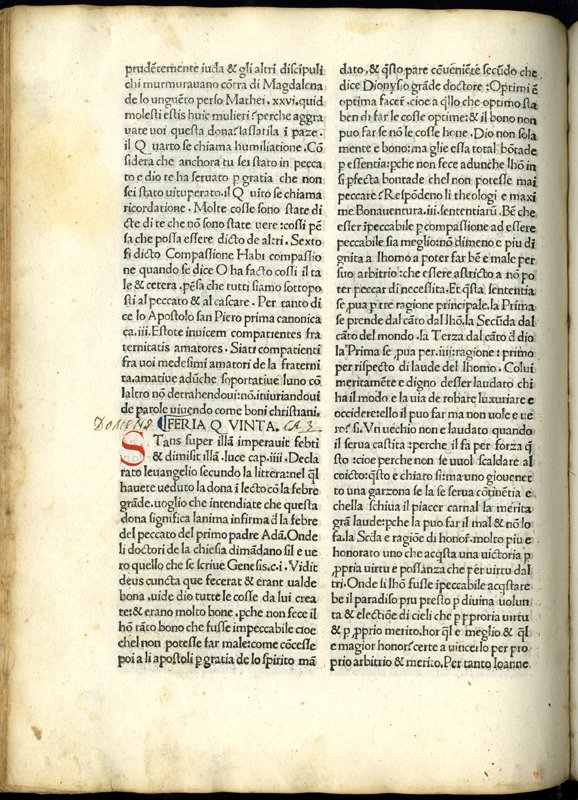 prudẽtemente iuda & gli altri discipuli
chi murmurauano cõtra di Magdalena
de lo unguẽto perso Mathei. xxvi. quid
molesti estis huic mulieri? perche aggra
uate uoi questa dona? lassatila ĩ paze.
il Quarto se chiama humiliatione. Cõ
sidera che anchora tu sei stato in pecca
to e dio te ha seruato p gratia che non
sei stato uituperato. il Q uito se chiama
ricordatione. Molte cosse sono state di
cte di te che nõ sono state uere: cossi pẽ
sa che possa essere dicto de altri. Sexto
fi dicto Compassione Habi compassio
ne quando se dice O ha facto cossi il ta
le & cetera. pẽsa che tutti siamo sottopo
sti al peccato & al cascare. Per tanto di
ce lo Apostolo san Piero prima canonica
ca. iii. Estote inuicem compatientes fra
ternitatis amatores. Siati compatienti
fra uoi medesimi amatori de la fraterni
ta. amatiue adũche soportatiue luno cõ
laltro nõ detrahendoui: nõ iniuriandoui
de parole uiuendo come boni christiani.
DOMENE FERIA Q VINTA. CA 3
STans super illã imperauit febri
& dimisit illã. luce cap. iiii. Decla
rato leuangelio secundo la littera: nel q̃l
hauete ueduto la dona ĩ lecto cõ la febre
grãde. uoglio che intendiate che questa
dona significa lanima infirma đ la febre
del peccato del primo padre Adã. Onde
li doctori de la chiesia dimãdano sil e ue
ro quello che se scriue Genesis. c. i. Vidit
deus cuncta que fecerat & erant ualde
bona. uide dio tutte le cosse da lui crea
te: & erano molto bone. pche non fece il
hõ rãto bono che fusse impeccabile cioe
chel non potesse far male: come cõcesse
poi a li apostoli p gratia de lo spirito mã
dato, & q̃sto pare cõueniẽte secũdo che
dice Dionysio grãde doctore: Optimi ẽ
optima facer̃. cioe a q̃llo che optimo sta
ben di far le cose optime: & il bono non
puo far se nõ le cosse bone. Dio non sola
mente e bono: ma glie essa total bõtade
p essentia: pche non fece adunche lhõ in
si pfecta bontade chel non potesse mai
peccare? Respõdeno li theologi e maxi
me Bonauentura. iii. sententiarũ. Bẽ che
esser ĩpeccabile p compassione ad essere
peccabile sia meglio: nõ dimeno e piu di
gnita a lhomo a poter far bẽ e male per
suo arbitrio: che essere astricto a nõ po
ter peccar di necessita. Et q̃sta sententia
se, pua p tre ragione principale. la Prima
se prende dal cãto dal lhõ. la Secũda dal
cãto del mondo. la Terza dal cãto đ dio
la Prima se, pua per. iiii: ragione: primo
per rispecto di laude del lhomo. Colui
meritamẽte e digno desser laudato chi
ha il modo e la uia de robare luxuriare e
occidere tello il puo far ma non uole e ue
ro? si. Vn uechio non e laudato quando
il serua castita: perche il fa per forza q̃
sto: cioe perche non se uuol scaldare al
coicto: q̃sto e chiaro si: ma uno giouener
to una garzona se la se serua cõtinẽtia e
chella schiua il piacer carnal la merita
grã laude: pche la puo far il mal & nõ lo
fa. la Seđa e ragiõe di honor̃. molto piu e
honorato uno che acq̃sta una uictoria p
ppria uirtu e possanza che per uirtu dal
tri. Onde si lhõ fusse ĩpeccabile acq̃stare
be il paradiso piu presto p diuina uolun
ta & electiõe di cieli che p ppria uirtu
& p pprio merito. hor q̃l e meglio & q̃l
e magior honor? certe a uincerlo per pro
prio arbitrio & merito. Per tanto Ioanne